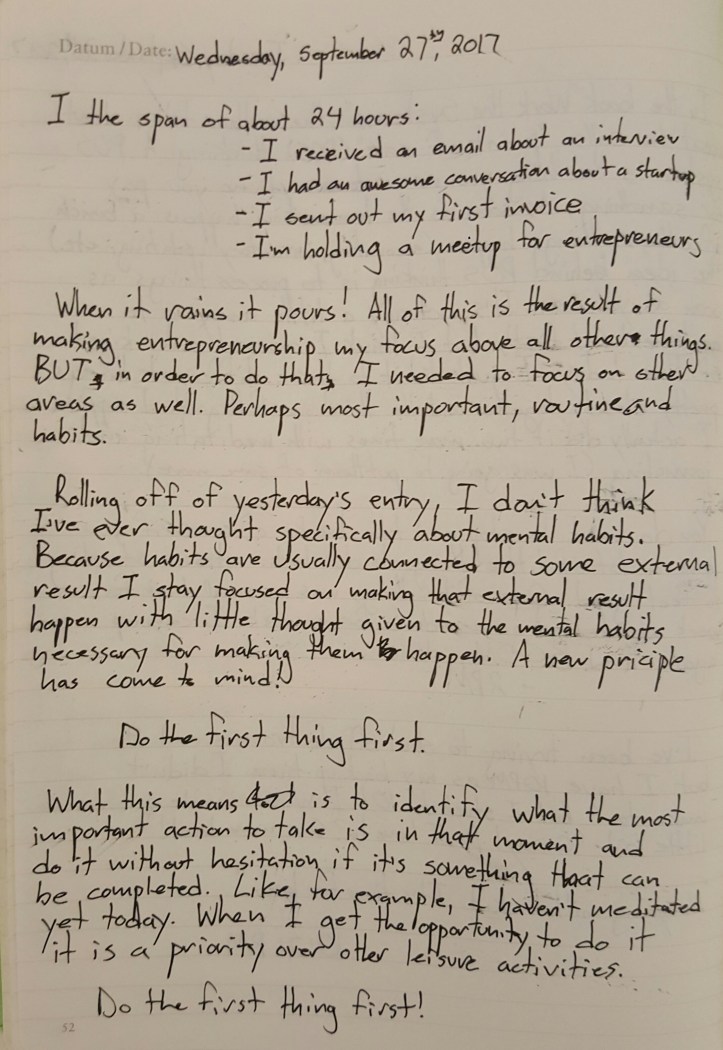 Datum / Date: Wednesday, September 27th, 2017
I the span of about 24 hours:
- I received an email about an interview
- I had an awesome conversation about a startup
- I sent out my first invoice
- I'm holding a meetup for entrepreneurs
When it rains it pours! All of this is the result of
making entrepreneurship my focus above all other things.
BUT, in order to do that, I needed to focus on other
areas as well. Perhaps most important, routine and
habits.
Rolling off of yesterday's entry, I don't think
I've ever thought specifically about mental habits.
Because habits are usually connected to some external
result I stay focused on making that external result
happen with little thought given to the mental habits
necessary for making them happen. A new priciple
has come to mind!
Do the first thing first.
What this means is to identify what the most
important action to take is in that moment and
do it without hesitation if it's something that can
be completed. Like, for example, I haven't meditated
yet today. When I get the opportunity to do it
it is a priority over other leisure activities.
Do the first thing first!
52